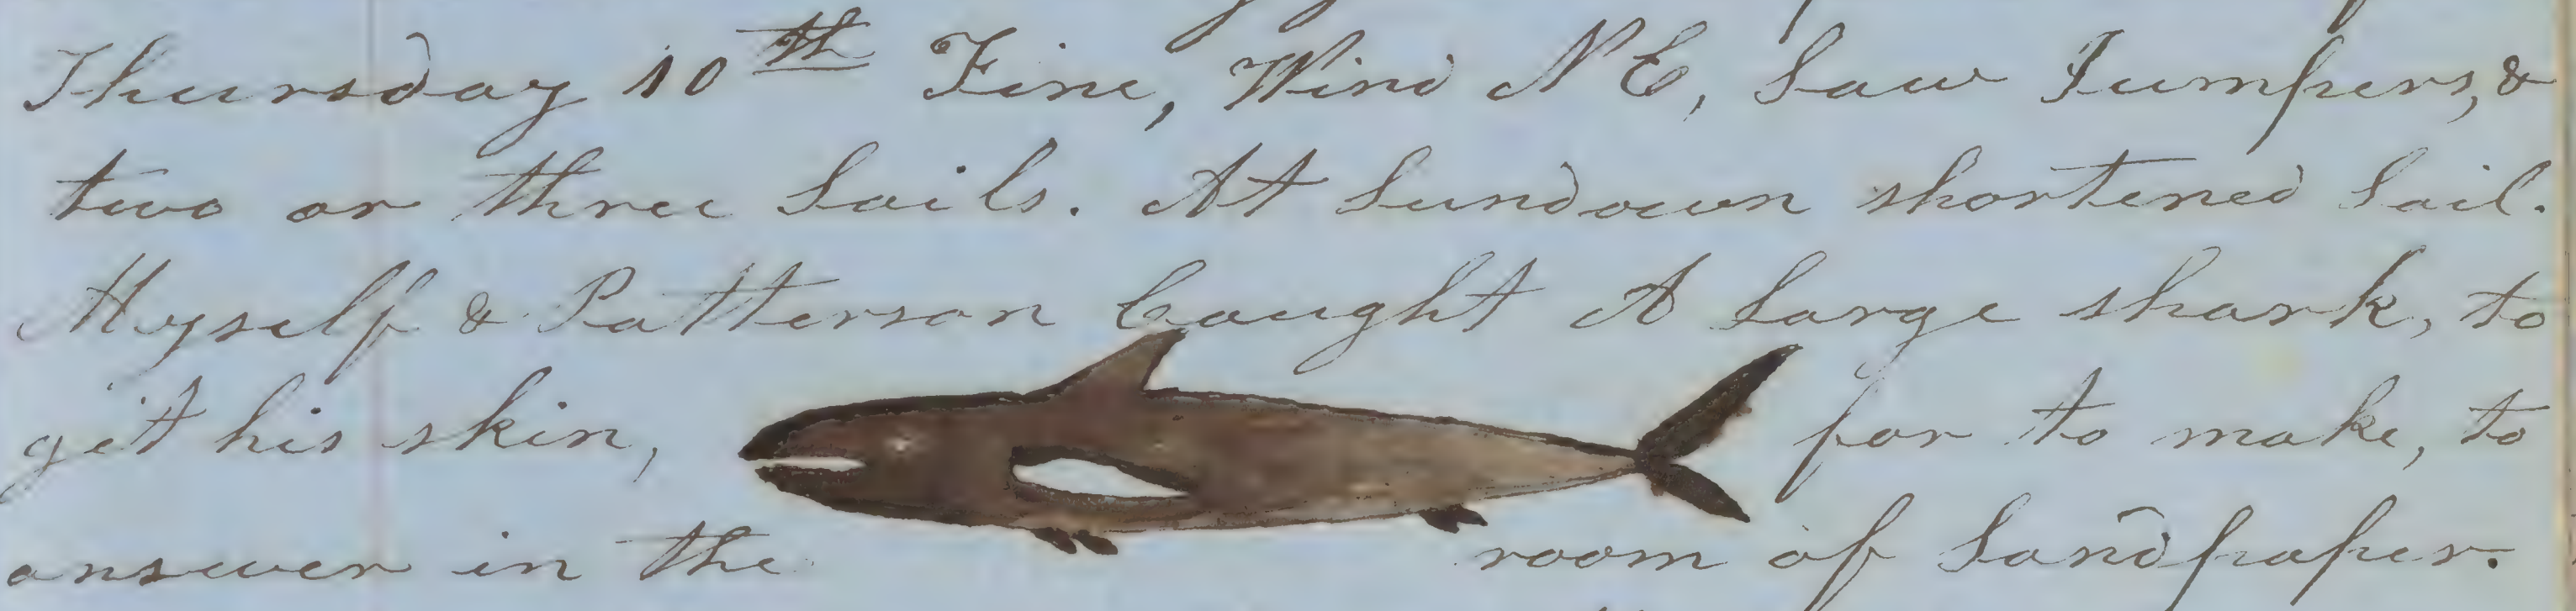 Thursday 10th Fine, Wind N E, Saw Jumpers, &
two or three Sails. At Sundown shortened Sail.
Myself & Patterson Caught A Large shark, to
git his skin, for to make, to
answer in the room of Sandpaper.